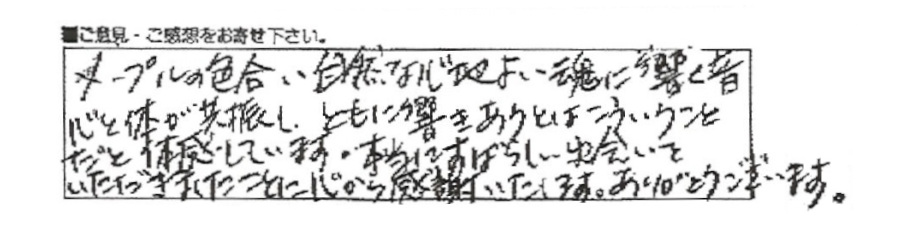 ■ご意見・ご感想をお寄せ下さい。
メープルの色合い自然な心地よい魂に響く音
心と体が共振し、ともに響きあうとはこういうこと
だと体感しています。本当にすばらしい出会いを
いただきましたことに心から感謝いたします。ありがとうございます。